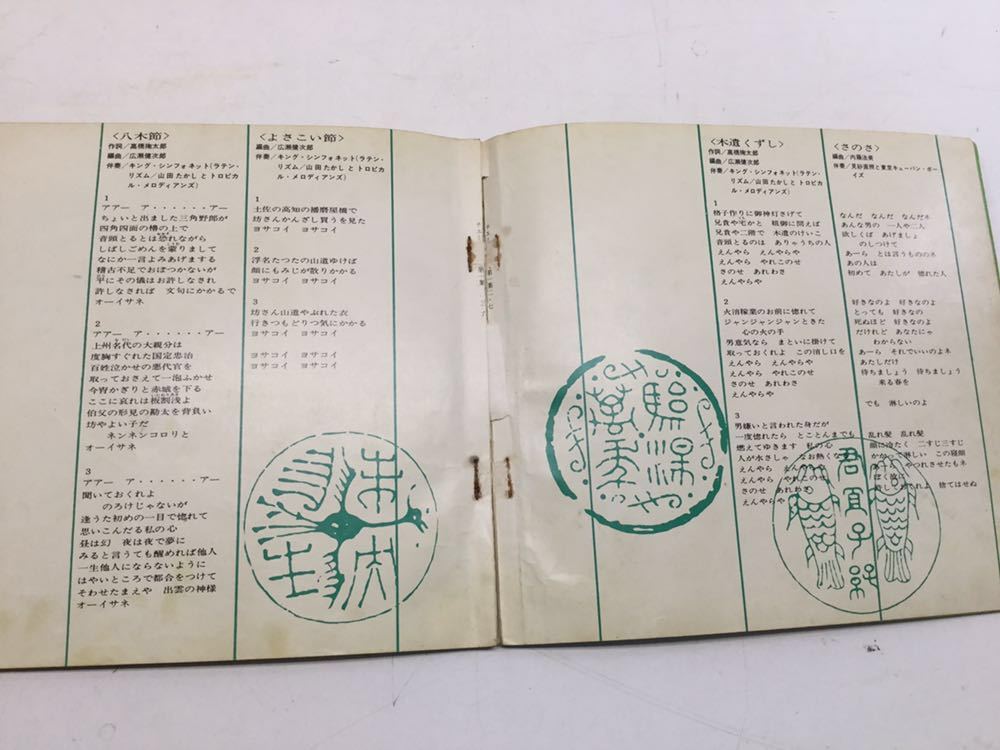 〈八木節〉
作詞／高橋掬太郎
編曲／広瀬健次郎
伴奏／キング・シンフォネット(ラテン・
リズム／山田たかしとトロピカ
ル・メロディアンズ)
1
アアー ア・・・・・・アー
ちょいと出ました三角野郎が
四角四面の櫓の上で
音頭とるとは恐れながら
しばしごめんを蒙りまして
なにか一言よみあげまする
稽古不足でおぼつかないが
平にその儀はお許しなされ
許しなされば 文句にかかるで
オーイサネ
2
アアー ア・・・・・・アー
上州名代の大親分は
度胸すぐれた国定忠治
百姓泣かせの悪代官を
取っておさえて一泡ふかせ
今宵かぎりと赤城を下る
ここに哀れは板割浅よ
伯父の形見の勘太を背負い
坊やよい子だ
ネンネンシコロリと
オーイサネ
3
アアー ア・・・・・・アー
聞いておくれよ
のろけじゃないが
逢うた初めの一目で惚れて
思いこんだる私の心
昼は幻 夜は夜で夢に
みると言うても醒めれば他人
一生他人にならないように
はやいところで都合をつけて
そわせたまえや 出雲の神様
オーイサネ
〈よさこい節〉
編曲／広瀬健次郎
伴奏／キング・シンフォネット(ラテン・
リズム／山田たかしとトロピカ
ル・メロディアンズ)
1
土佐の高知の播磨屋橋で
坊さんかんざし買うを見た
ヨサコイ ヨサコイ
2
浮名たつたの山道ゆけば
顔にもみじが散りかかる
ヨサコイ ヨサコイ
3
坊さん山道やぶれた衣
行きつもどりつ気にかかる
ヨサコイ ヨサコイ
ヨサコイ ヨサコイ
ヨサコイ ヨサコイ
〈木遣くずし〉
作詞／高橋掬太郎
編曲／広瀬健次郎
伴奏／キング・シンフォネット(ラテン・
リズム／山田たかしとトロピカ
ル・メロディアンズ)
1
格子作りに御神灯さげて
兄貴や宅かと 姐御に問えば
兄貴や二階で 木遣のけいこ
音頭とるのは ありゃうちの人
えんやらや えんやらや
えんやらや やれこのせ
さのせ あれわさ
えんやらや
2
火消稼業のお前に惚れて
ジャンジャンジャンときた
心の火の手
男意気なら まといに掛けて
取っておくれよ この消し口を
えんやらや えんやらや
えんやらや やれこのせ
さのせ あれわさ
えんやらや
3
男嫌いと言われた身だが
一度惚れたら とことんまでも
燃えてゆきます 私の心
人が水さしゃ なお熱くな
えんやら
えんやらや やれこのせ
さのせ あれわさ
えんやらや
〈さのさ〉
編曲／内藤法美
伴奏／見砂直照と東京キューバン・ボー
イズ
なんだ なんだ なんだネ
あんな男の 一人や二人
欲しくば あげましょ
のしつけて
あーら とは言うもののネ
あの人は
初めて あたしが 惚れた人
好きなのよ 好きなのよ
とっても 好きなの
死ぬほど 好きなのよ
だけれど あなたにゃ
わからない
あーら それでいいのよネ
あたしだけ
待ちましょう 待ちましょう
来る春を
でも 淋しいのよ
乱れ髪 乱れ髪
顔に冷たく 二すじ三すじ
かかって淋しい この寝顔
やつれさせたもネ
捨てはせぬ
君宜子孫